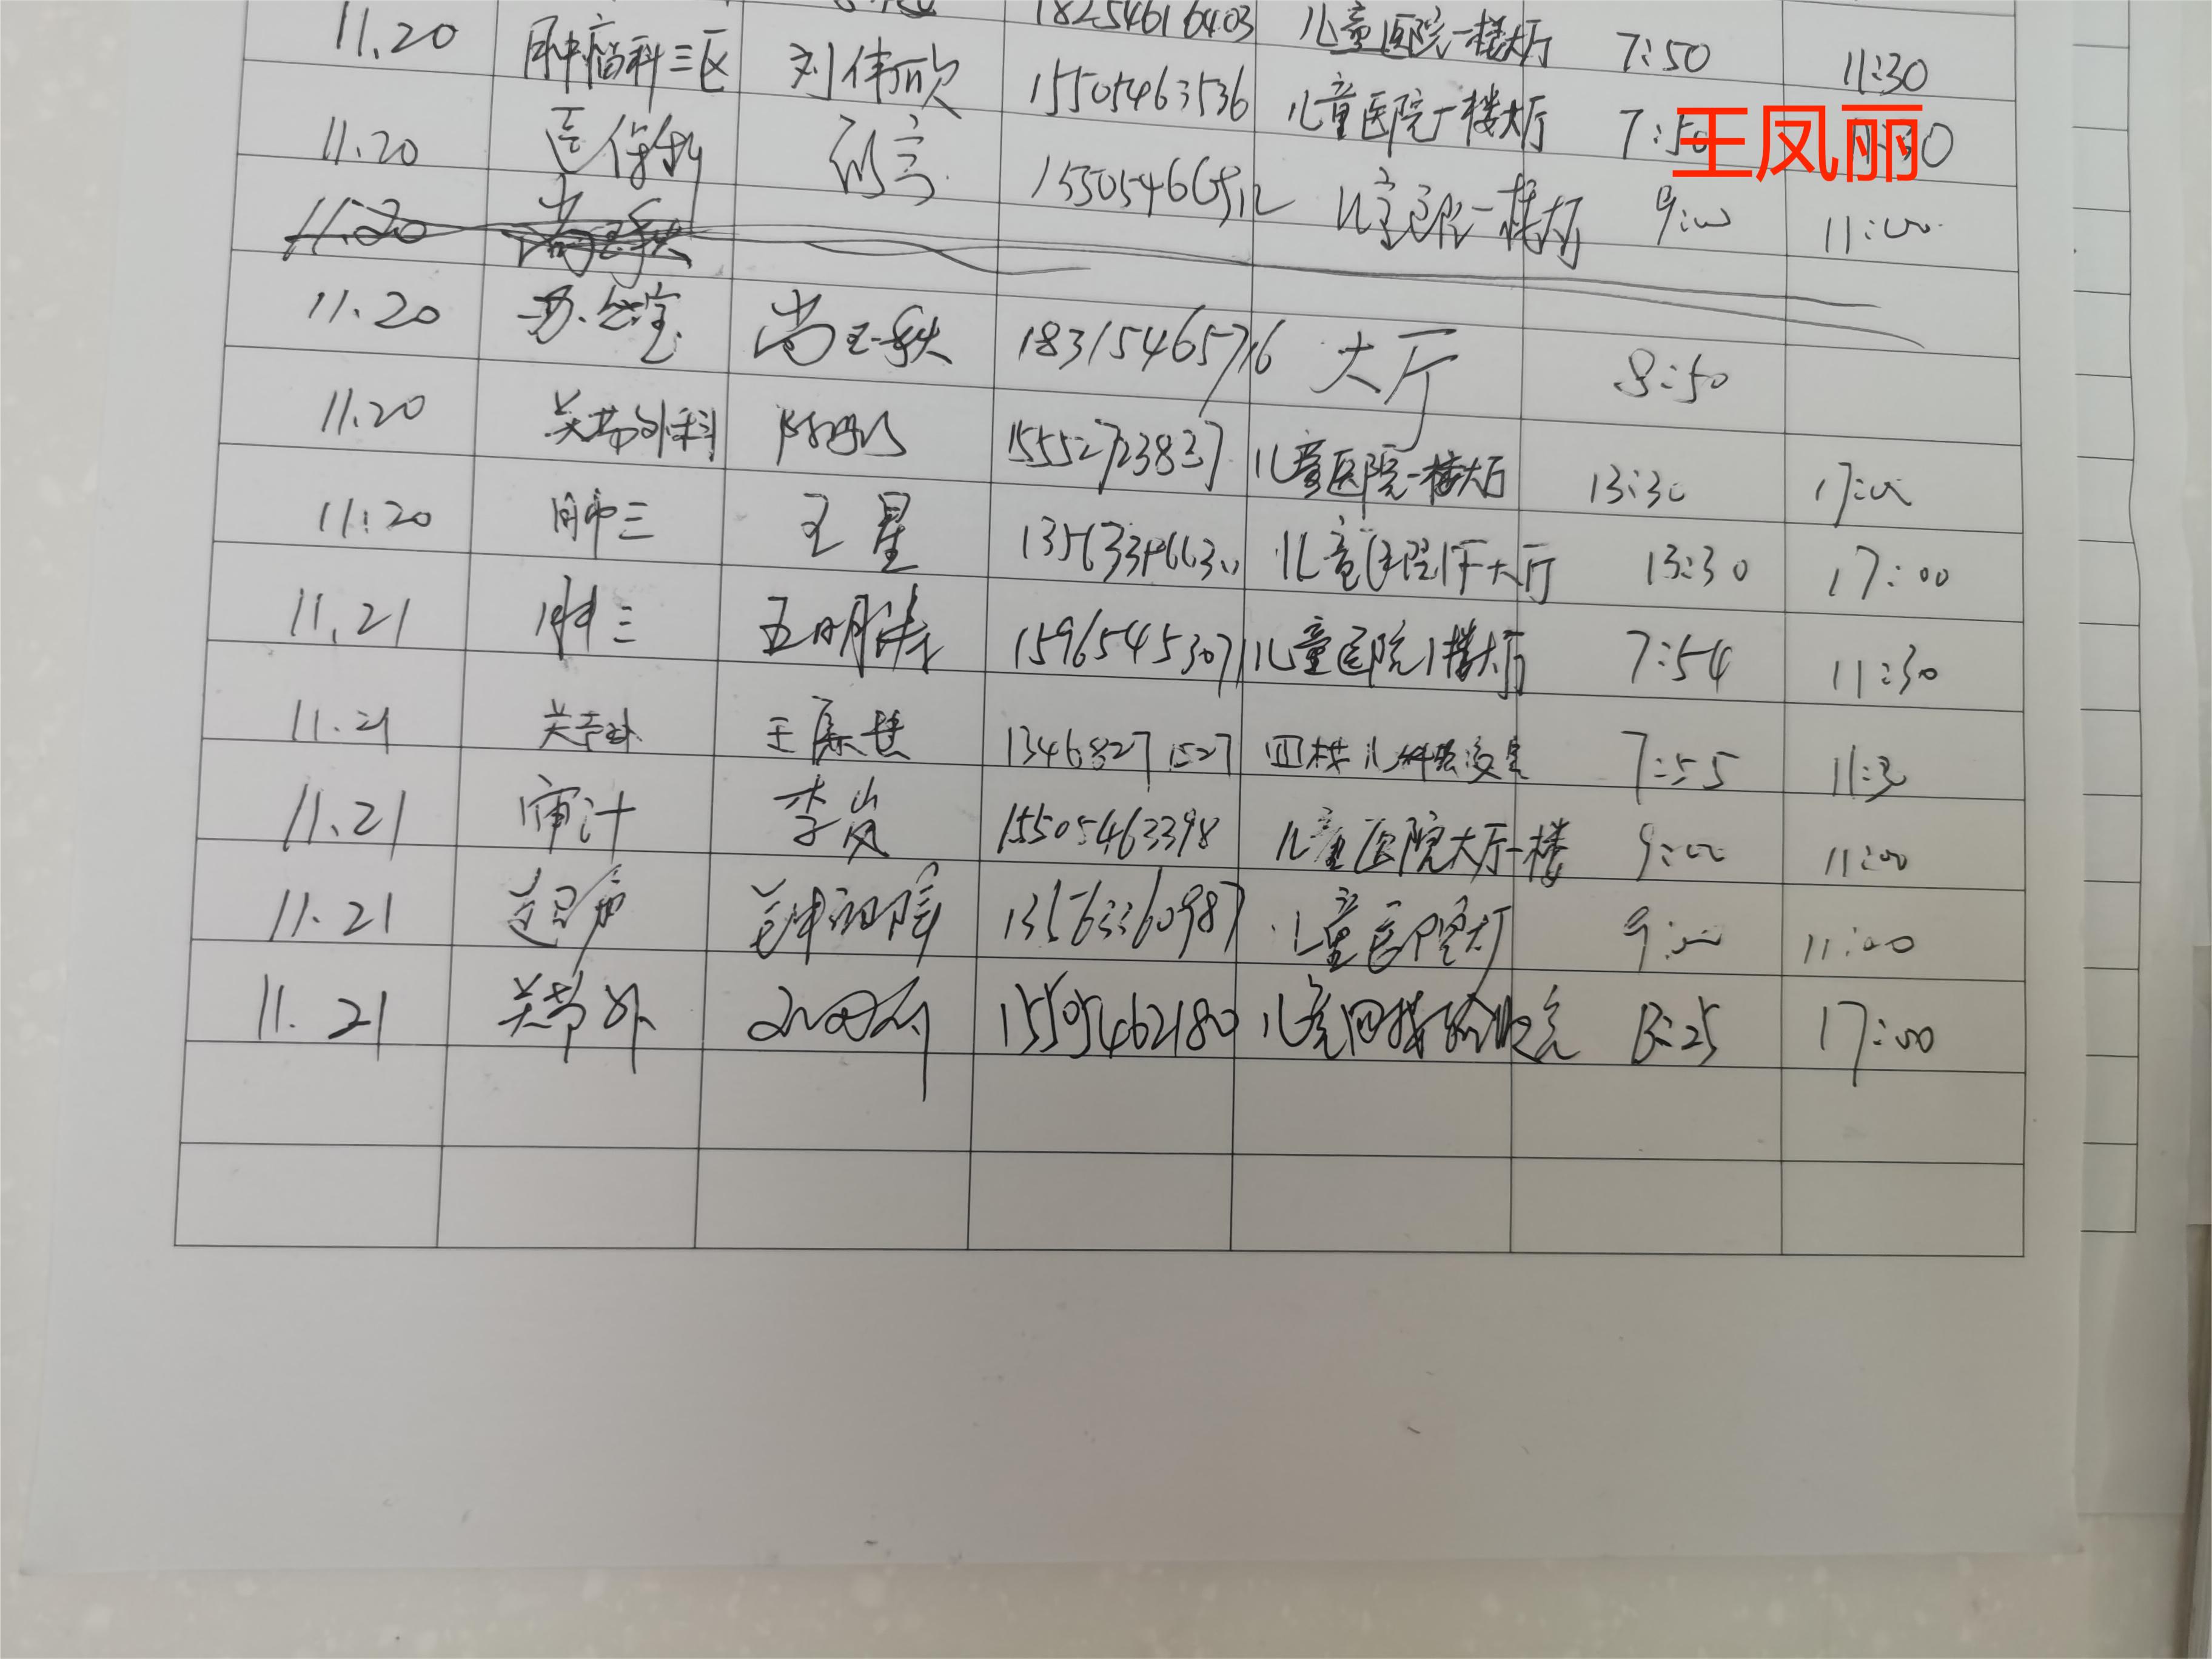 18254616403 儿童医院一楼大厅 7:50 11:30
11.20 肿瘤科三区 刘伟欣 15505463536 儿童医院一楼大厅 7:50
王凤丽
11.20 医保 儿童医院一楼大厅 9:00 11:00
11.20
11.20 办公室 尚玉秋 18315465716 大厅 8:50
11.20 关节外科 15552723837 儿童医院一楼大厅 13:30 17:00
11.20 肿三 王星 儿童医院1F大厅 13:30 17:00
11.21 肿三 王明涛 15965453071 儿童医院1楼大厅 7:54 11:30
11.21 关节外 王 13468271527 四楼儿科 7:55 11:3
11.21 审计 李岚 15505463398 儿童医院大厅一楼 9:00 11:00
11.21 13563360987 儿童医院大厅 9:00 11:00
11.21 关节外 15505462180 13:25 17:00